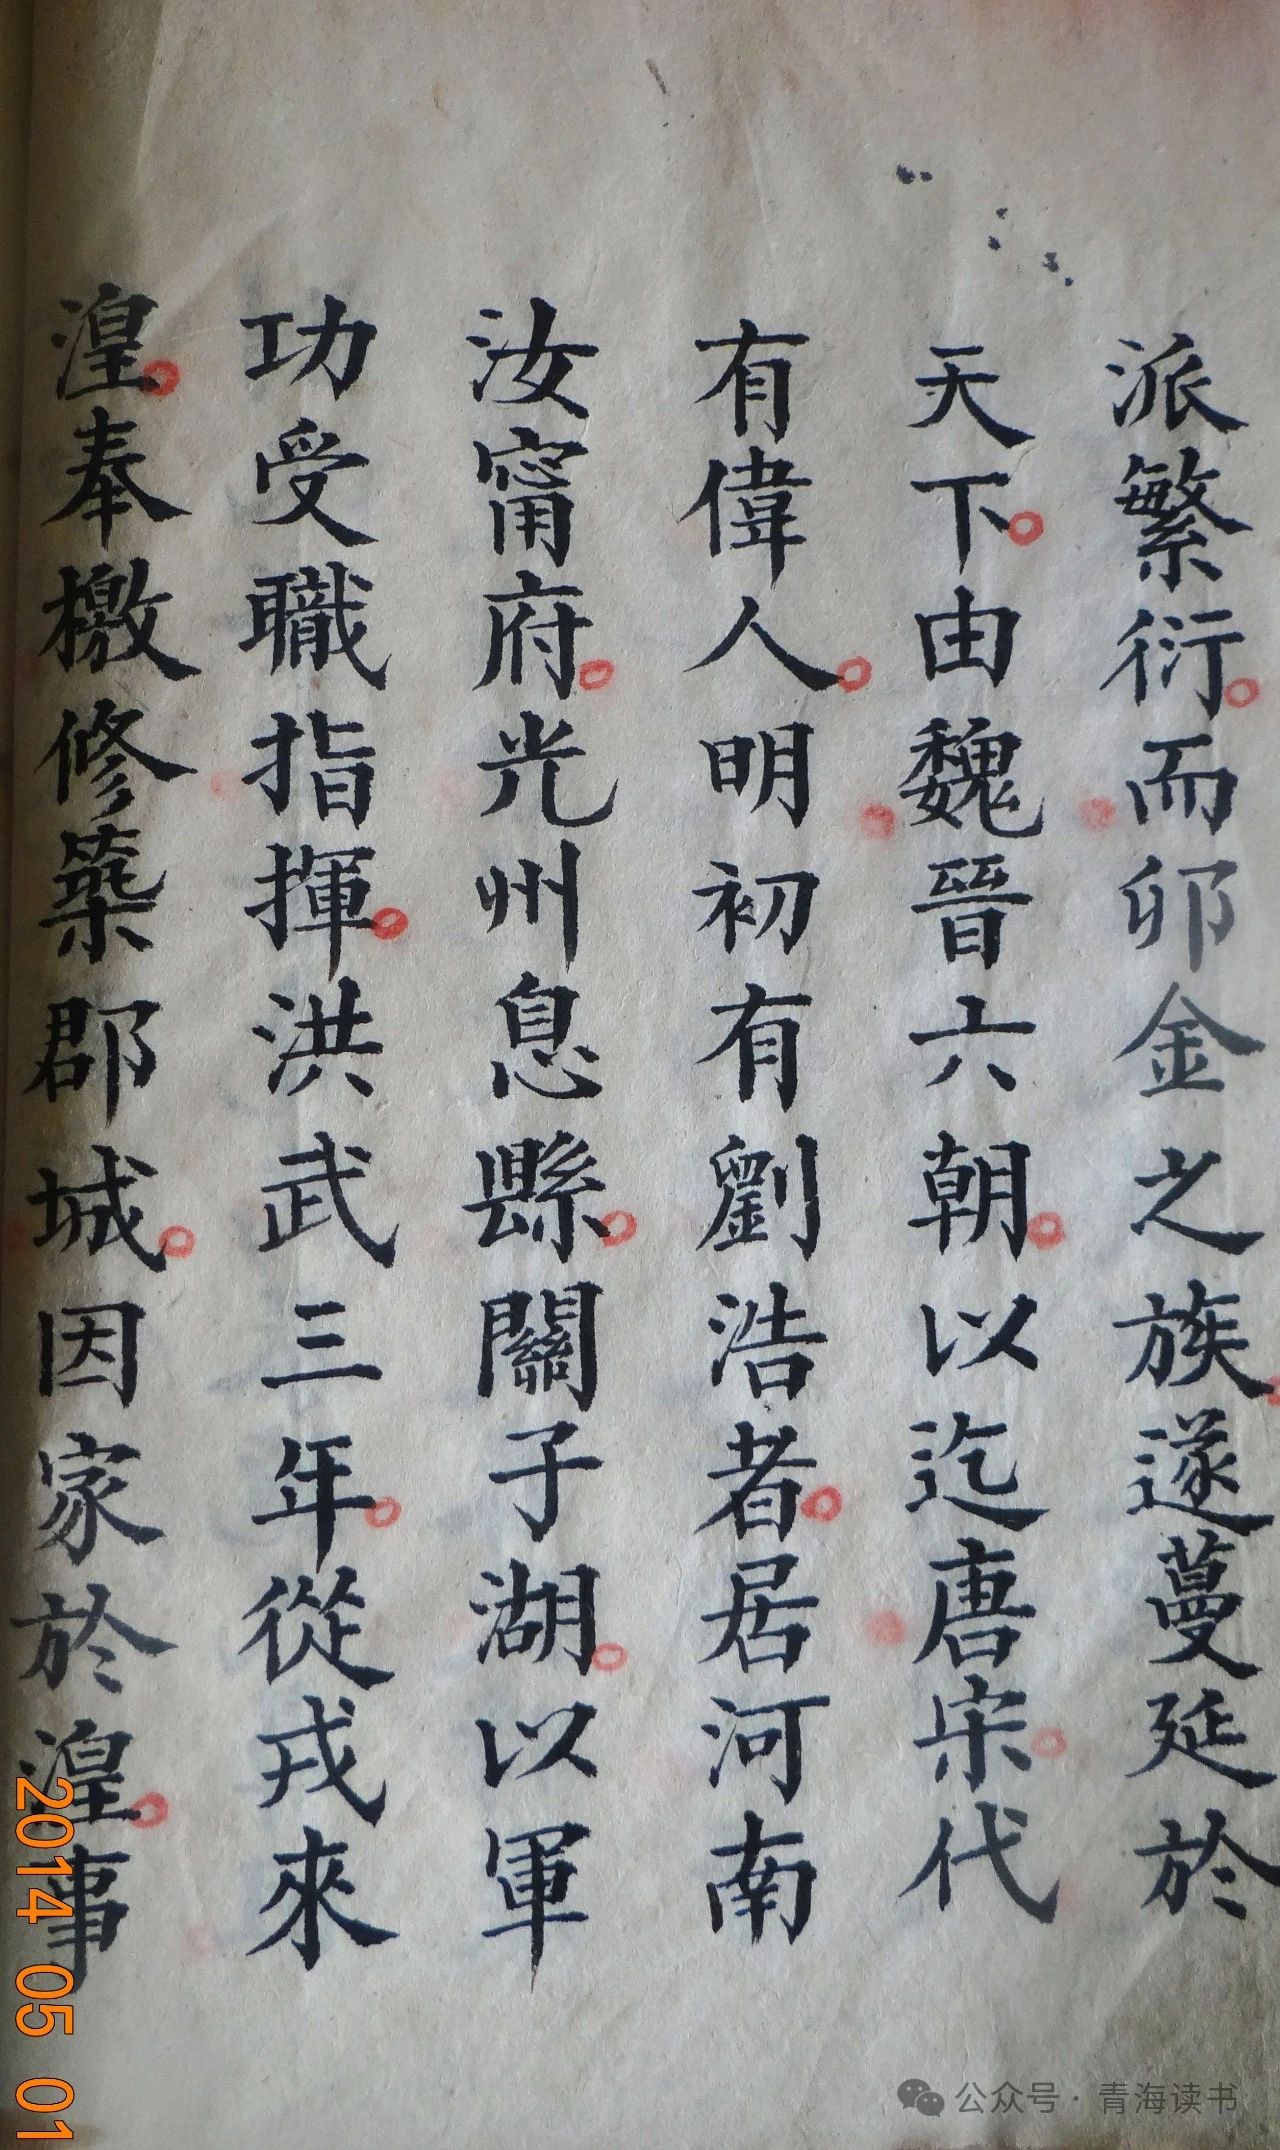 派繁衍。而卯金之族。遂蔓延於
天下。由魏晉六朝。以迄唐宋。代
有偉人。明初有劉浩者。居河南
汝甯府。光州息縣。關子湖。以軍
功受職指揮。洪武三年。從戎來
湟。奉檄修築郡城。因家於湟。事
2014 05 01
公众号·青海读书